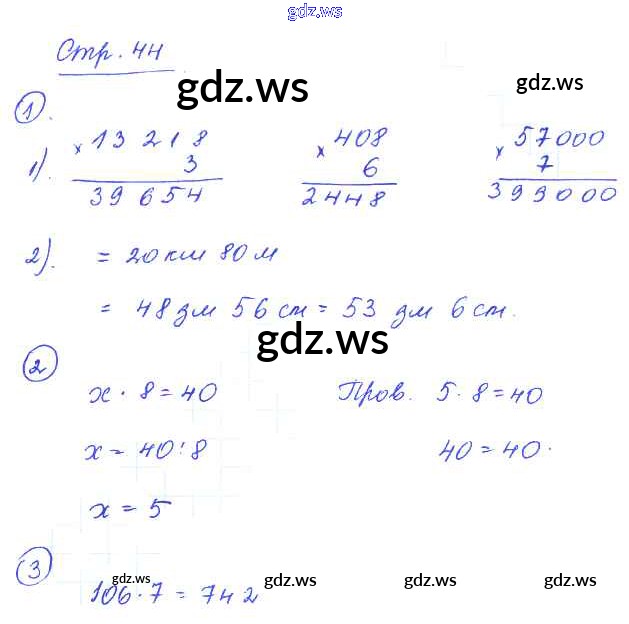 gdz.ws
Стр. 44
gdz.ws
gdz.ws
①.
1). × 13 218 × 408 × 57000
3 6 7
39 654 2448 399000
2). = 20 км 80 м
= 48 дм 56 см = 53 дм 6 см.
gdz.ws
②
x · 8 = 40 Пров. 5 · 8 = 40
x = 40 : 8 40 = 40.
x = 5
③
gdz.ws gdz.ws gdz.ws gdz.ws
106 · 7 = 742